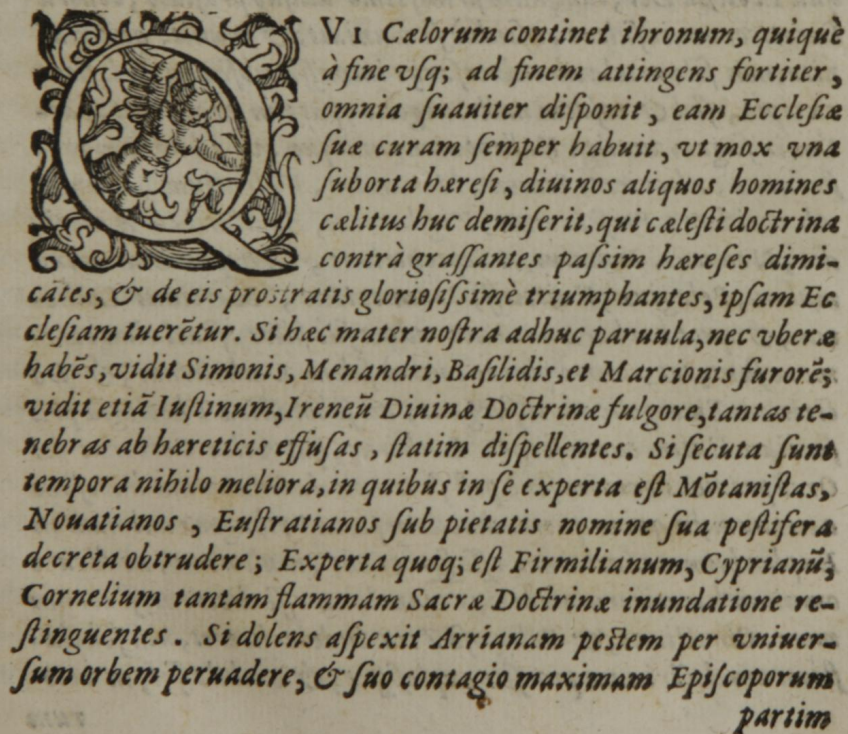 QVI Cælorum continet thronum, quiquè
à fine vſq; ad finem attingens fortiter,
omnia ſuauiter diſponit, eam Eccleſiæ
ſuæ curam ſemper habuit, vt mox vna
ſuborta hæreſi, diuinos aliquos homines
cælitus huc demiſerit, qui cæleſti doctrina
contrà graſſantes paſsim hæreſes dimi-
cātes, & de eis prostratis glorioſiſsimè triumphantes, ipſam Ec
cleſiam tuerētur. Si hæc mater noſtra adhuc paruula, nec vberæ
habēs, vidit Simonis, Menandri, Baſilidis, et Marcionis furorē;
vidit etiā Iuſtinum, Ireneū Diuinæ Doctrinæ fulgore, tantas te-
nebras ab hæreticis effuſas, ſtatim diſpellentes. Si ſecuta ſunt
tempora nihilo meliora, in quibus in ſe experta eſt Mōtaniſtas,
Nouatianos, Euſtratianos ſub pietatis nomine ſua peſtifera
decreta obtrudere; Experta quoq; eſt Firmilianum, Cyprianū,
Cornelium tantam flammam Sacræ Doctrinæ inundatione re-
ſtinguentes. Si dolens aſpexit Arrianam pestem per vniuer-
ſum orbem peruadere, & ſuo contagio maximam Epiſcoporum
partim